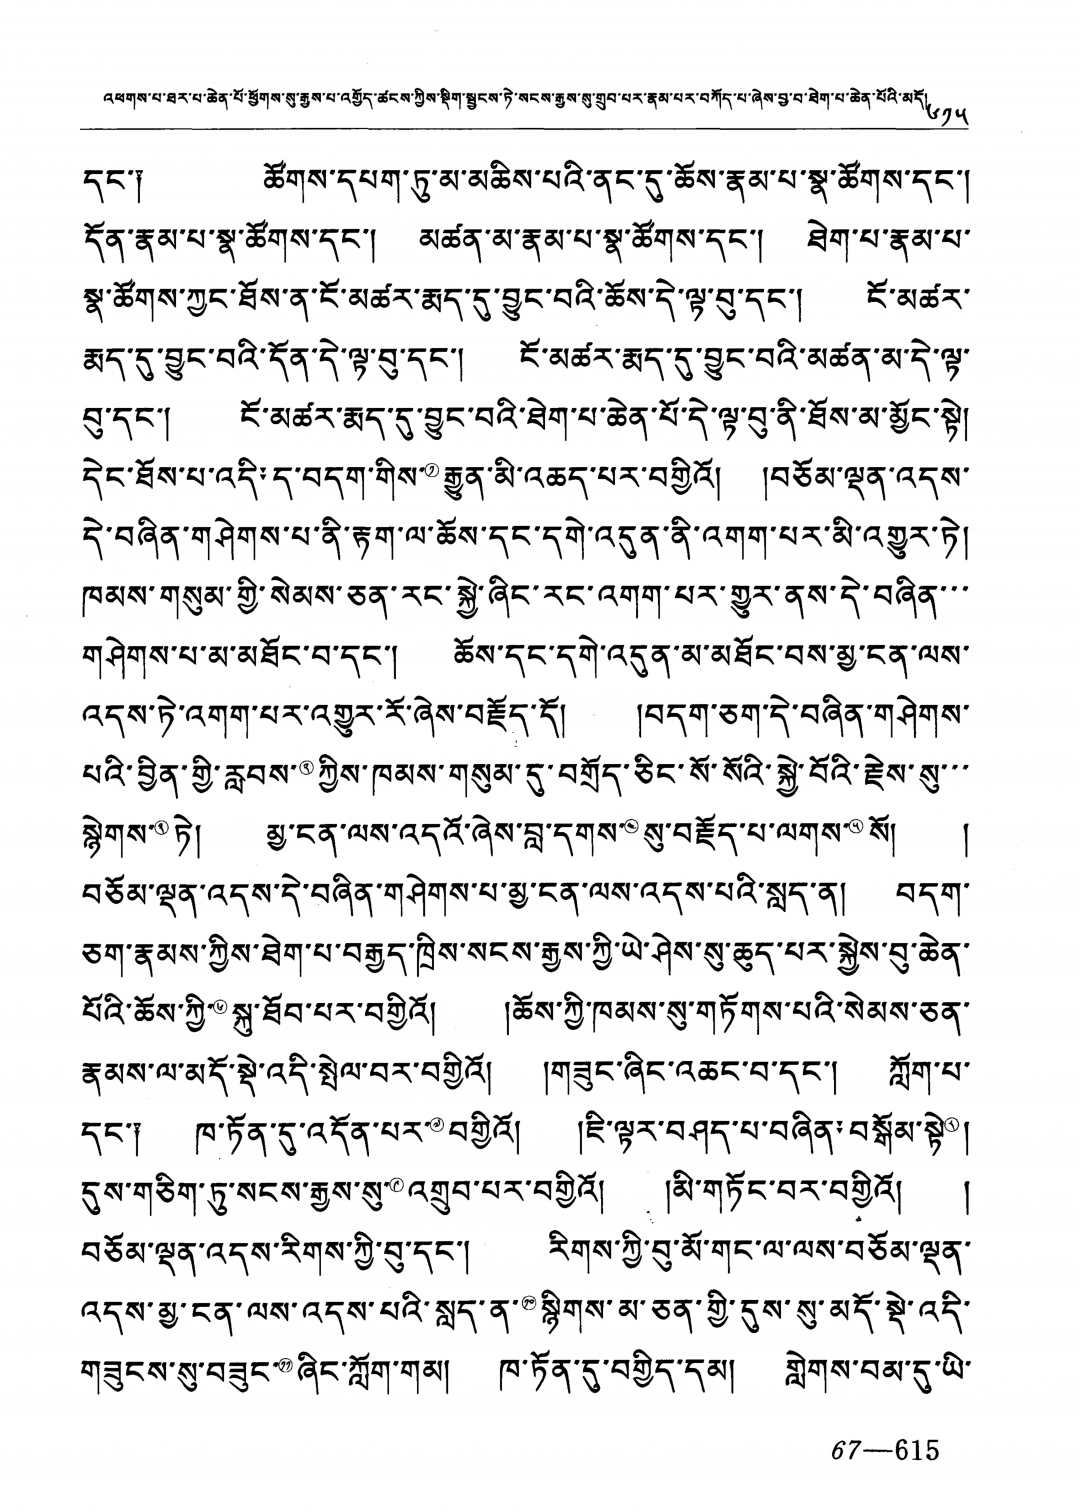 འཕགས་པ་ཐར་པ་ཆེན་པོ་ཕྱོགས་སུ་རྒྱས་པ་འགྱོད་ཚངས་ཀྱིས་སྡིག་སྦྱངས་ཏེ་སངས་རྒྱས་སུ་གྲུབ་པར་རྣམ་པར་བཀོད་པ་ཞེས་བྱ་བ་ཐེག་པ་ཆེན་པོའི་མདོ། ༦༡༥
དང་༑ ཚོགས་དཔག་ཏུ་མ་མཆིས་པའི་ནང་དུ་ཆོས་རྣམ་པ་སྣ་ཚོགས་དང་།
དོན་རྣམ་པ་སྣ་ཚོགས་དང་། མཚན་མ་རྣམ་པ་སྣ་ཚོགས་དང་། ཐེག་པ་རྣམ་པ་
སྣ་ཚོགས་ཀྱང་ཐོས་ན་ངོ་མཚར་རྨད་དུ་བྱུང་བའི་ཆོས་དེ་ལྟ་བུ་དང་། ངོ་མཚར་
རྨད་དུ་བྱུང་བའི་དོན་དེ་ལྟ་བུ་དང་། ངོ་མཚར་རྨད་དུ་བྱུང་བའི་མཚན་མ་དེ་ལྟ་
བུ་དང་། ངོ་མཚར་རྨད་དུ་བྱུང་བའི་ཐེག་པ་ཆེན་པོ་དེ་ལྟ་བུ་ནི་ཐོས་མ་མྱོང་སྟེ།
དེང་ཐོས་པ་འདི་ད་བདག་གིས་① རྒྱུན་མི་འཆད་པར་བགྱིའོ། །བཅོམ་ལྡན་འདས་
དེ་བཞིན་གཤེགས་པ་ནི་རྟག་ལ་ཆོས་དང་དགེ་འདུན་ནི་འགག་པར་མི་འགྱུར་ཏེ།
ཁམས་གསུམ་གྱི་སེམས་ཅན་རང་སྐྱེ་ཞིང་རང་འགག་པར་གྱུར་ནས་དེ་བཞིན་…
གཤེགས་པ་མ་མཐོང་བ་དང་། ཆོས་དང་དགེ་འདུན་མ་མཐོང་བས་མྱ་ངན་ལས་
འདས་ཏེ་འགག་པར་འགྱུར་རོ་ཞེས་བརྗོད་དོ། །བདག་ཅག་དེ་བཞིན་གཤེགས་
པའི་བྱིན་གྱི་རླབས་② ཀྱིས་ཁམས་གསུམ་དུ་བགྲོད་ཅིང་སོ་སོའི་སྐྱེ་བོའི་རྗེས་སུ་…
སྙེགས་③ ཏེ། མྱ་ངན་ལས་འདའོ་ཞེས་བླ་དགས་④ སུ་བརྗོད་པ་ལགས་⑤ སོ། །
བཅོམ་ལྡན་འདས་དེ་བཞིན་གཤེགས་པ་མྱ་ངན་ལས་འདས་པའི་སླད་ན། བདག་
ཅག་རྣམས་ཀྱིས་ཐེག་པ་བརྒྱད་ཁྲིས་སངས་རྒྱས་ཀྱི་ཡེ་ཤེས་སུ་ཆུད་པར་སྐྱེས་བུ་ཆེན་
པོའི་ཆོས་ཀྱི་⑥ སྐུ་ཐོབ་པར་བགྱིའོ། །ཆོས་ཀྱི་ཁམས་སུ་གཏོགས་པའི་སེམས་ཅན་
རྣམས་ལ་མདོ་སྡེ་འདི་སྤེལ་བར་བགྱིའོ། །གཟུང་ཞིང་འཆང་བ་དང་། ཀློག་པ་
དང་༑ ཁ་ཏོན་དུ་འདོན་པར་⑦ བགྱིའོ། །ཇི་ལྟར་བཤད་པ་བཞིན་བསྒོམ་སྟེ⑧ །
དུས་གཅིག་ཏུ་སངས་རྒྱས་སུ་⑨ འགྲུབ་པར་བགྱིའོ། །མི་གཏོང་བར་བགྱིའོ། །
བཅོམ་ལྡན་འདས་རིགས་ཀྱི་བུ་དང་། རིགས་ཀྱི་བུ་མོ་གང་ལ་ལས་བཅོམ་ལྡན་
འདས་མྱ་ངན་ལས་འདས་པའི་སླད་ན་⑩ སྙིགས་མ་ཅན་གྱི་དུས་སུ་མདོ་སྡེ་འདི་
གཟུངས་སུ་བཟུང་⑪ ཞིང་ཀློག་གམ། ཁ་ཏོན་དུ་བགྱིད་དམ། གླེགས་བམ་དུ་ཡི་
67—615